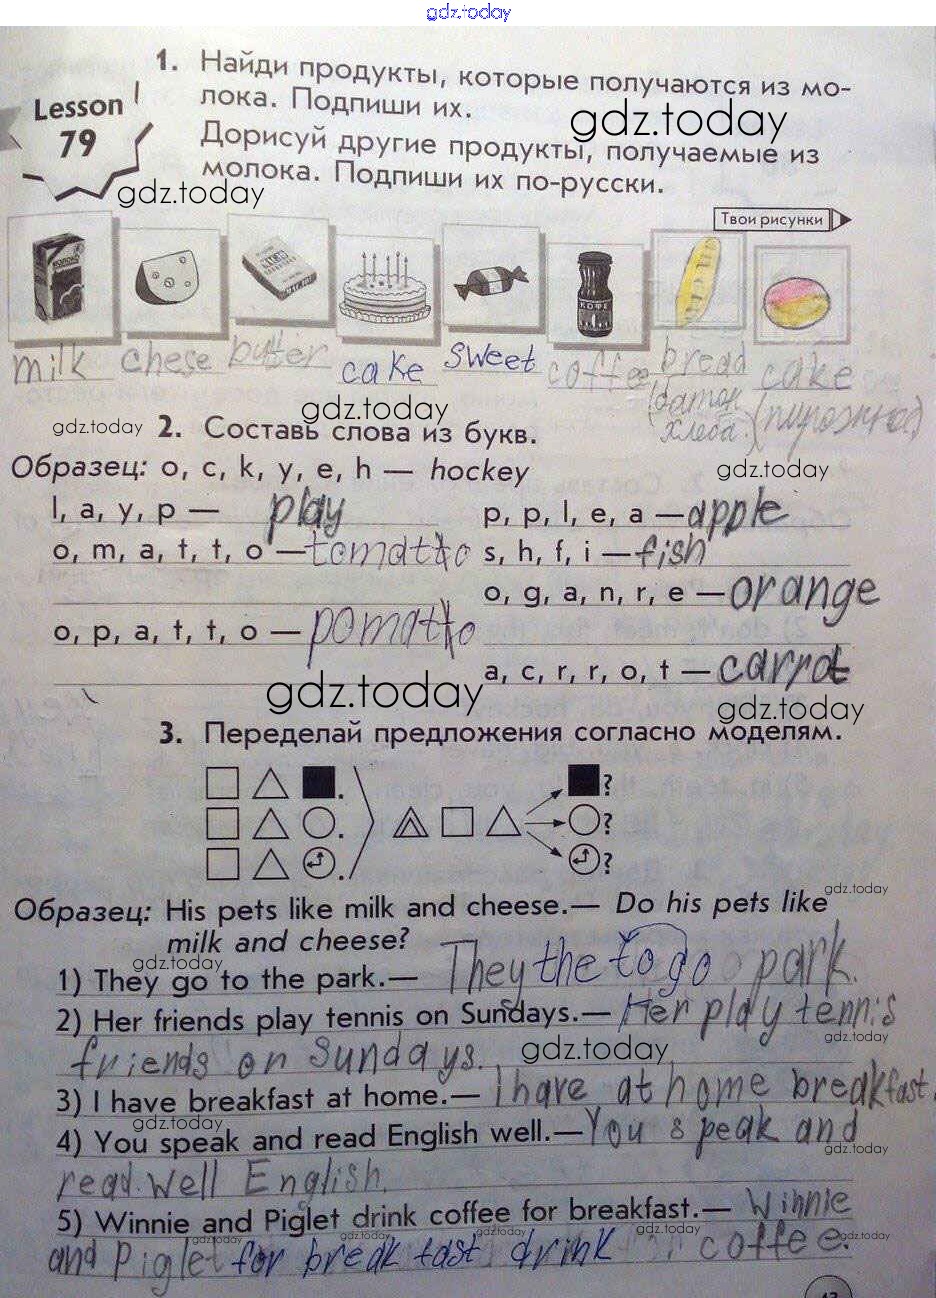 gdz.today
Lesson
79
1. Найди продукты, которые получаются из мо-
лока. Подпиши их.
gdz.today
Дорисуй другие продукты, получаемые из
молока. Подпиши их по-русски.
gdz.today
Твои рисунки
МОЛОКО
КОФЕ
milk chese butter cake sweet coffee bread cake
(батон хлеба.) (пирожное)
gdz.today
gdz.today
2. Составь слова из букв.
gdz.today
Образец: o, c, k, y, e, h — hockey
l, a, y, p — play
p, p, l, e, a — apple
o, m, a, t, t, o — tomatto
s, h, f, i — fish
o, g, a, n, r, e — orange
o, p, a, t, t, o — pomatto
a, c, r, r, o, t — carrot
gdz.today
gdz.today
3. Переделай предложения согласно моделям.
.
. ?
. ?
?
gdz.today
Образец: His pets like milk and cheese.— Do his pets like
milk and cheese?
gdz.today
1) They go to the park.— They the to go park.
2) Her friends play tennis on Sundays.— Her play tennis
gdz.today
friends on Sundays.
gdz.today
3) I have breakfast at home.— I have at home breakfast.
gdz.today
4) You speak and read English well.— You speak and
gdz.today
read well English.
5) Winnie and Piglet drink coffee for breakfast.— Winnie
gdz.today gdz.today gdz.today gdz.today
and Piglet for breakfast drink coffee.